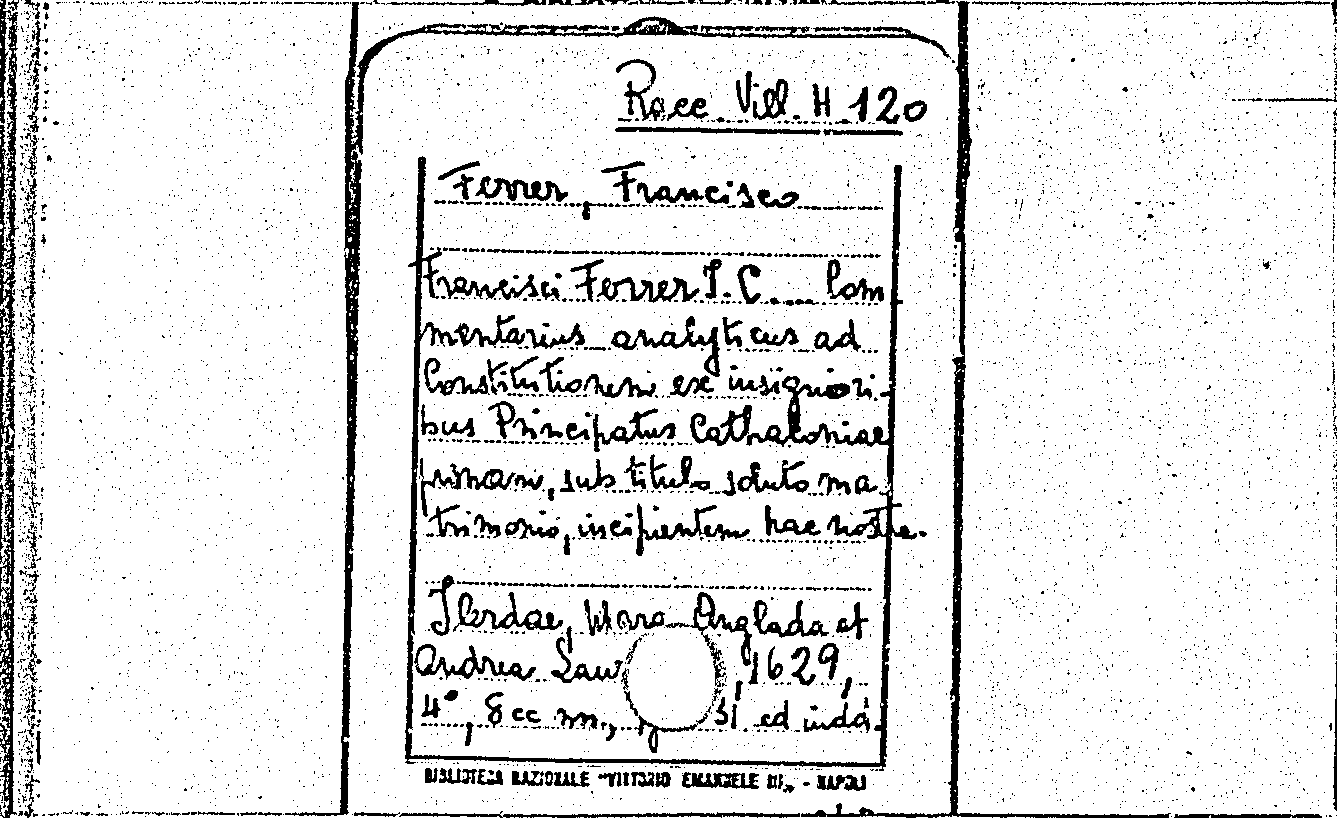 Racc. Vill. H. 120
Ferrer, Francisco
Francisci Ferrer J. C. ... Com
mentarius analyticus ad
Constitutionem ex insigniori-
bus Principatus Cathaloniae
primam, sub titulo soluto ma
trimonio, incipientem hac nostra.
Ilerdae, Mara Anglada et
Andrea Lau , 1629,
4°, 8 cc nn., 51 ed indd.
BIBLIOTECA NAZIONALE "VITTORIO EMANUELE III" - NAPOLI